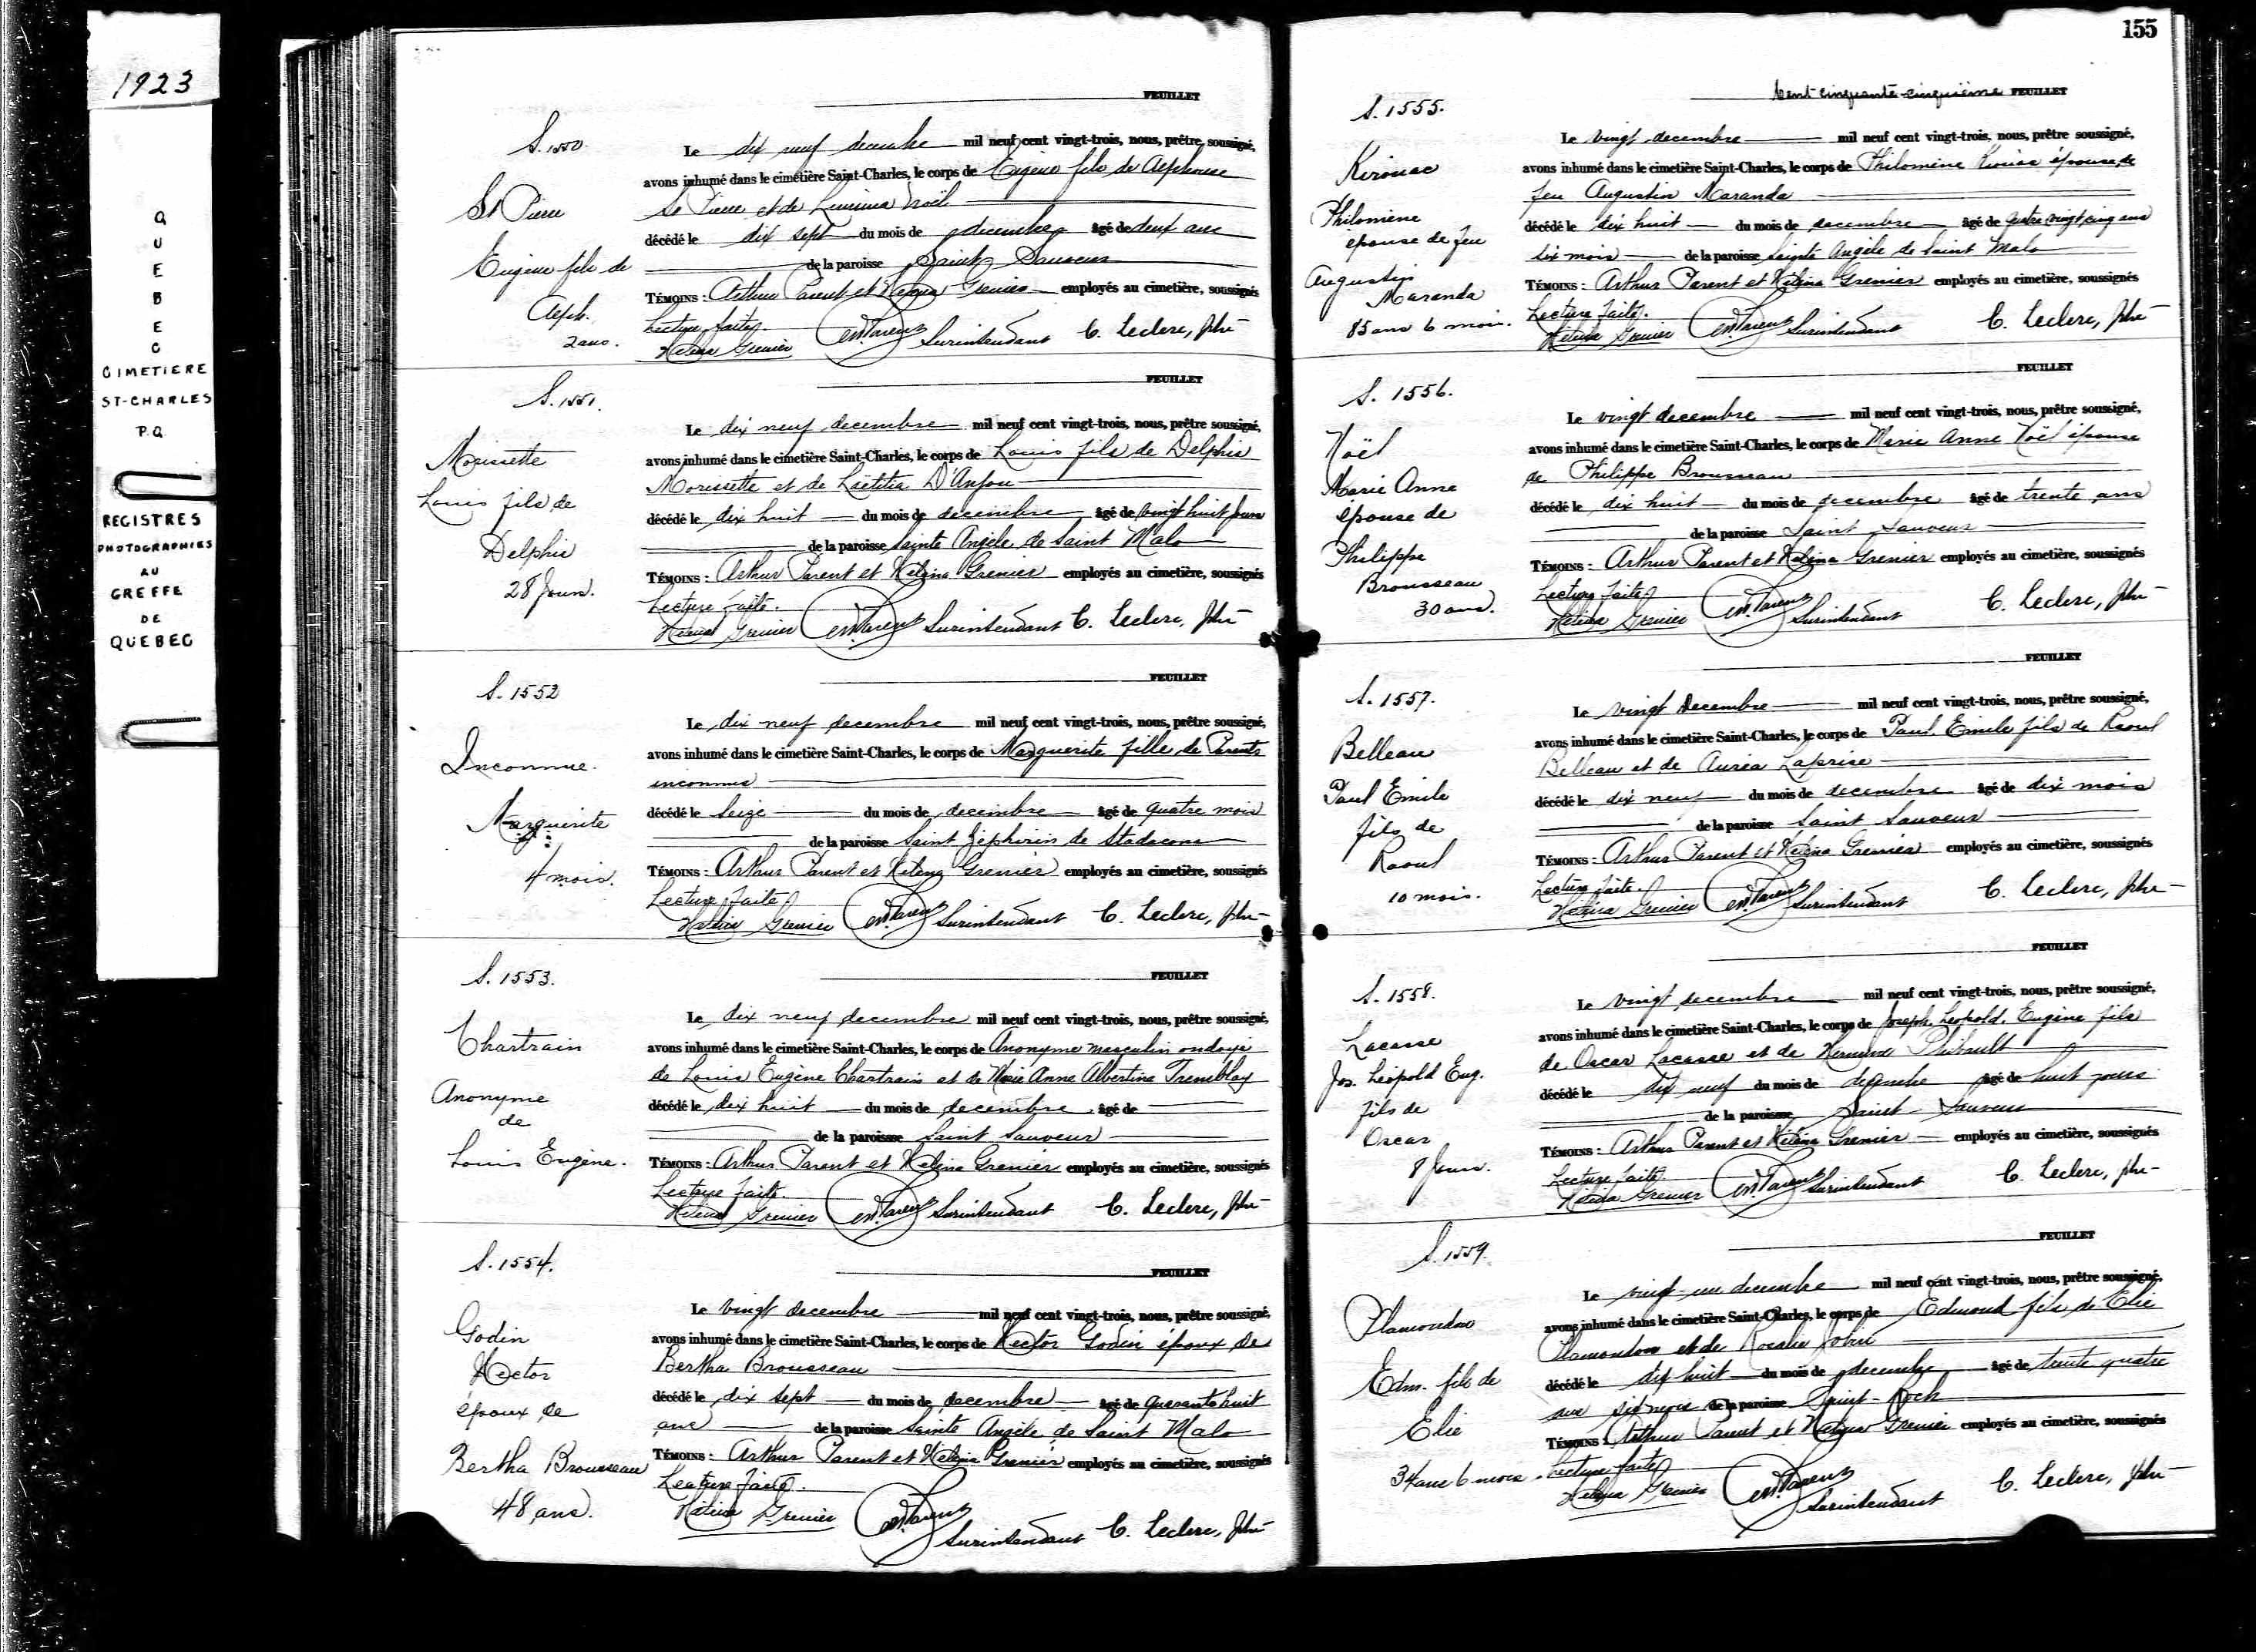 1923
QUEBEC
CIMETIERE
ST-CHARLES
P.Q.
REGISTRES
PHOTOGRAPHIES
AU
GREFFE
DE
QUEBEC
FEUILLET
S. 1550.
St Pierre
Eugène fils de
Alph.
2 ans.
Le dix neuf decembre mil neuf cent vingt-trois, nous, prêtre, soussigné,
avons inhumé dans le cimetière Saint-Charles, le corps de Eugène fils de Alphonse
St Pierre et de Noël
décédé le dix sept du mois de decembre âgé de deux ans
de la paroisse Saint Sauveur
TÉMOINS : Arthur Parent et Helena Grenier employés au cimetière, soussignés
Lecture faite
Helena Grenier Parent Surintendant C. Leclerc, ptre
FEUILLET
S. 1551.
Morissette
Louis fils de
Delphis
28 Jours.
Le dix neuf decembre mil neuf cent vingt-trois, nous, prêtre soussigné,
avons inhumé dans le cimetière Saint-Charles, le corps de Louis fils de Delphis
Morissette et de Laetitia D'Anjou
décédé le dix huit du mois de decembre âgé de vingt huit jours
de la paroisse Sainte Angèle de Saint Malo
TÉMOINS : Arthur Parent et Helena Grenier employés au cimetière, soussignés
Lecture faite.
Helena Grenier Parent Surintendant C. Leclerc, ptre
FEUILLET
S. 1552
Inconnue.
Marguerite
4 mois.
Le dix neuf decembre mil neuf cent vingt-trois, nous, prêtre soussigné,
avons inhumé dans le cimetière Saint-Charles, le corps de Marguerite fille de Parents
inconnus
décédé le Seize du mois de decembre âgé de quatre mois
de la paroisse Saint Zéphirin de Stadacona
TÉMOINS : Arthur Parent et Helena Grenier employés au cimetière, soussignés
Lecture faite
Helena Grenier Parent Surintendant C. Leclerc, ptre
FEUILLET
S. 1553.
Chartrain
Anonyme
de
Louis Eugène.
Le dix neuf decembre mil neuf cent vingt-trois, nous, prêtre soussigné,
avons inhumé dans le cimetière Saint-Charles, le corps de Anonyme masculin ondoyé
de Louis Eugène Chartrain et de Marie Anne Albertine Tremblay
décédé le dix huit du mois de decembre âgé de
de la paroisse Saint Sauveur
TÉMOINS : Arthur Parent et Helena Grenier employés au cimetière, soussignés
Lecture faite.
Helena Grenier Parent Surintendant C. Leclerc, ptre
FEUILLET
S. 1554.
Godin
Hector
époux de
Bertha Brousseau
48 ans.
Le vingt decembre mil neuf cent vingt-trois, nous, prêtre soussigné,
avons inhumé dans le cimetière Saint-Charles, le corps de Hector Godin époux de
Bertha Brousseau
décédé le dix sept du mois de decembre âgé de quarante huit
ans de la paroisse Sainte Angèle de Saint Malo
TÉMOINS : Arthur Parent et Helena Grenier employés au cimetière, soussignés
Lecture faite.
Helena Grenier Parent
Surintendant C. Leclerc, ptre
155
Cent cinquante-cinquième FEUILLET
S. 1555.
Kirouac
Philomène
épouse de feu
Augustin
Maranda
85 ans 6 mois.
Le vingt decembre mil neuf cent vingt-trois, nous, prêtre soussigné,
avons inhumé dans le cimetière Saint-Charles, le corps de Philomène Kirouac épouse de
feu Augustin Maranda
décédé le dix huit du mois de decembre âgé de quatre vingt cinq ans
six mois de la paroisse Sainte Angèle de Saint Malo
TÉMOINS : Arthur Parent et Helena Grenier employés au cimetière, soussignés
Lecture faite.
Helena Grenier Parent Surintendant C. Leclerc, ptre
FEUILLET
S. 1556.
Noël
Marie Anne
épouse de
Philippe
Brousseau
30 ans.
Le vingt decembre mil neuf cent vingt-trois, nous, prêtre soussigné,
avons inhumé dans le cimetière Saint-Charles, le corps de Marie Anne Noël épouse
de Philippe Brousseau
décédé le dix huit du mois de decembre âgé de trente ans
de la paroisse Saint Sauveur
TÉMOINS : Arthur Parent et Helena Grenier employés au cimetière, soussignés
Lecture faite
Helena Grenier Parent Surintendant C. Leclerc, ptre
FEUILLET
S. 1557.
Belleau
Paul Emile
fils de
Raoul
10 mois.
Le vingt Decembre mil neuf cent vingt-trois, nous, prêtre soussigné,
avons inhumé dans le cimetière Saint-Charles, le corps de Paul. Emile fils de Raoul
Belleau et de Aurea Laprise
décédé le dix neuf du mois de decembre âgé de dix mois
de la paroisse Saint Sauveur
TÉMOINS : Arthur Parent et Helena Grenier employés au cimetière, soussignés
Lecture faite.
Helena Grenier Parent Surintendant C. Leclerc, ptre
FEUILLET
S. 1558.
Lacasse
Jos. Léopold Eug.
fils de
Oscar
8 Jours.
Le vingt decembre mil neuf cent vingt-trois, nous, prêtre soussigné,
avons inhumé dans le cimetière Saint-Charles, le corps de Joseph. Leopold. Eugène fils
de Oscar Lacasse et de Thibault
décédé le dix neuf du mois de decembre âgé de huit jours
de la paroisse Saint-Sauveur
TÉMOINS : Arthur Parent et Helena Grenier employés au cimetière, soussignés
Lecture faite
Helena Grenier Parent Surintendant C. Leclerc, ptre
FEUILLET
S. 1559.
Plamondon
Edm. fils de
Elie
34 ans 6 mois
Le vingt-un decembre mil neuf cent vingt-trois, nous, prêtre soussigné,
avons inhumé dans le cimetière Saint-Charles, le corps de Edmond fils de Elie
Plamondon et de Rosalie Jobin
décédé le dix huit du mois de decembre âgé de trente quatre
ans six mois de la paroisse Saint-Roch
TÉMOINS : Arthur Parent et Helena Grenier employés au cimetière, soussignés
Lecture faite
Helena Grenier Parent Surintendant C. Leclerc, ptre